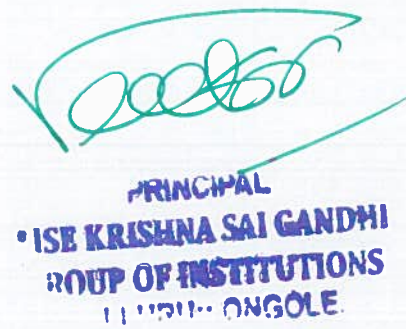 PRINCIPAL
ISE KRISHNA SAI GANDHI
ROUP OF INSTITUTIONS
ONGOLE.